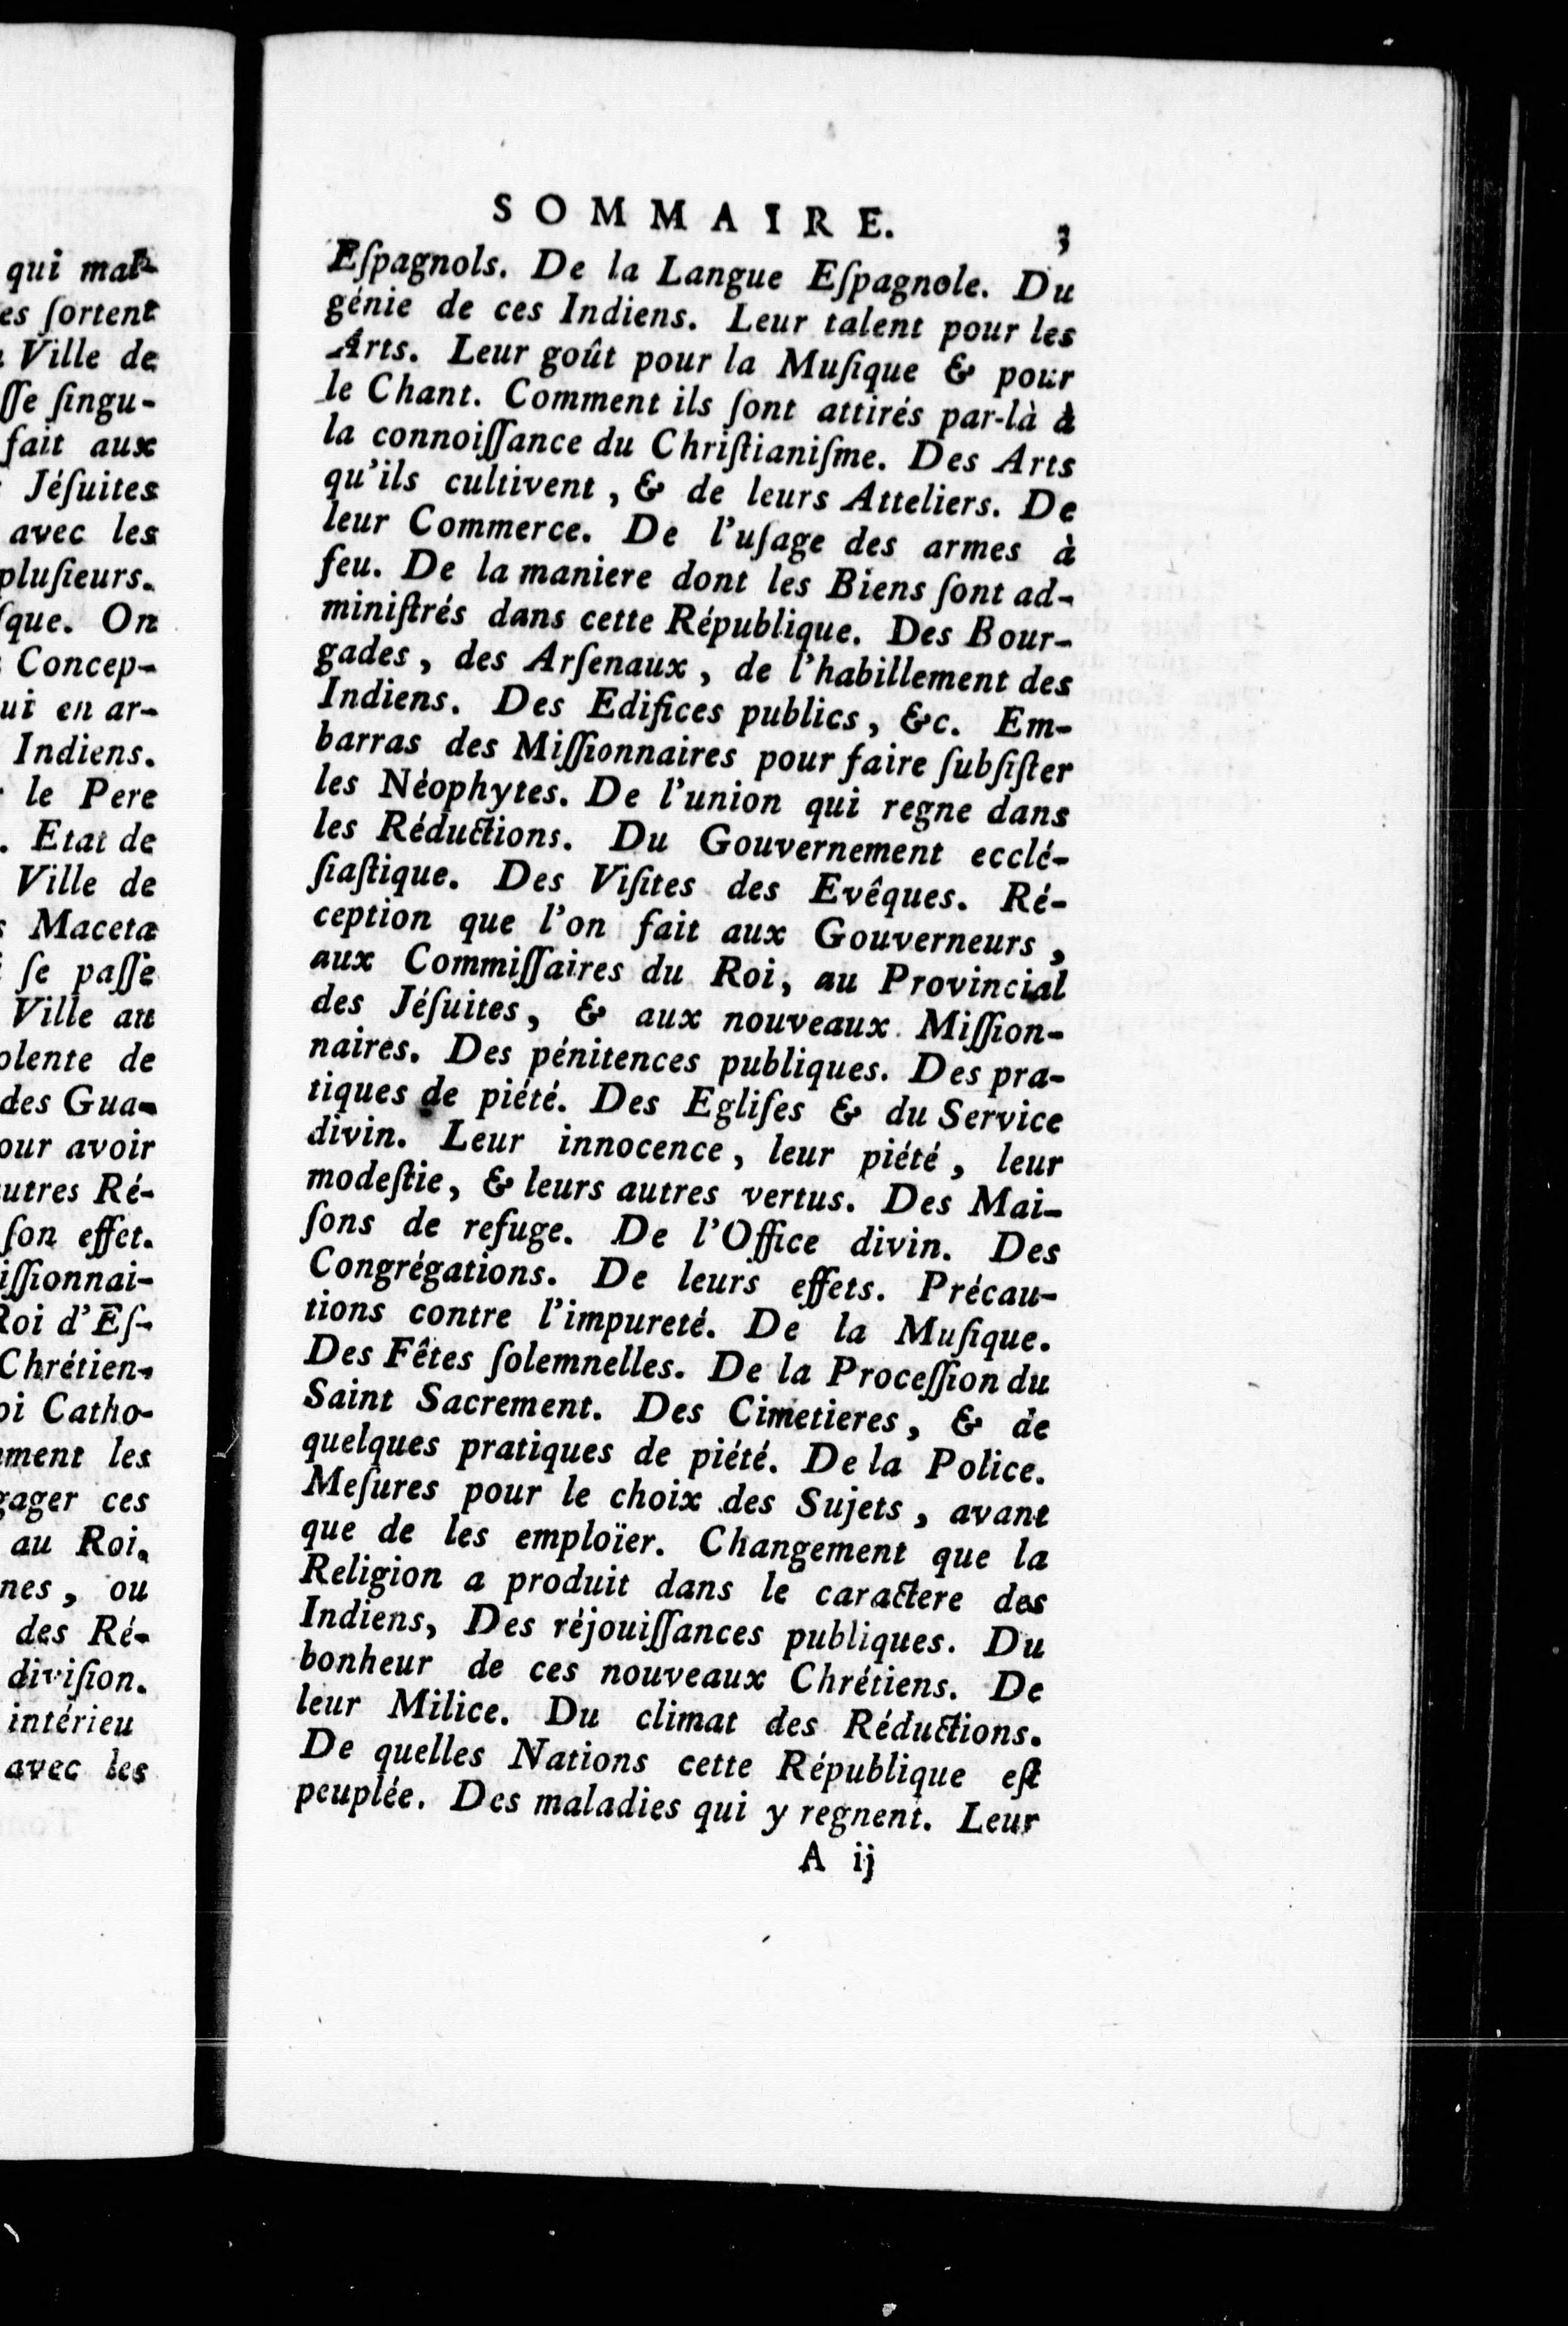 qui mal-
es ſortent
Ville de
ſſe ſingu-
fait aux
Jéſuites
avec les
pluſieurs.
ſque. On
Concep-
ui en ar-
Indiens.
le Pere
. Etat de
Ville de
Maceta
ſe paſſe
Ville au
olente de
des Gua-
our avoir
utres Ré-
ſon effet.
iſſionnai-
Roi d'Eſ-
Chrétien-
oi Catho-
ment les
gager ces
au Roi.
nes, ou
des Ré-
diviſion.
intérieu
avec les
SOMMAIRE. 3
Eſpagnols. De la Langue Eſpagnole. Du
génie de ces Indiens. Leur talent pour les
Arts. Leur goût pour la Muſique & pour
le Chant. Comment ils ſont attirés par-là à
la connoiſſance du Chriſtianiſme. Des Arts
qu'ils cultivent, & de leurs Atteliers. De
leur Commerce. De l'uſage des armes à
feu. De la maniere dont les Biens ſont ad-
miniſtrés dans cette République. Des Bour-
gades, des Arſenaux, de l'habillement des
Indiens. Des Edifices publics, &c. Em-
barras des Miſſionnaires pour faire ſubſiſter
les Néophytes. De l'union qui regne dans
les Réductions. Du Gouvernement ecclé-
ſiaſtique. Des Viſites des Evêques. Ré-
ception que l'on fait aux Gouverneurs,
aux Commiſſaires du Roi, au Provincial
des Jéſuites, & aux nouveaux Miſſion-
naires. Des pénitences publiques. Des pra-
tiques de piété. Des Egliſes & du Service
divin. Leur innocence, leur piété, leur
modeſtie, & leurs autres vertus. Des Mai-
ſons de refuge. De l'Office divin. Des
Congrégations. De leurs effets. Précau-
tions contre l'impureté. De la Muſique.
Des Fêtes ſolemnelles. De la Proceſſion du
Saint Sacrement. Des Cimetieres, & de
quelques pratiques de piété. De la Police.
Meſures pour le choix des Sujets, avant
que de les emploïer. Changement que la
Religion a produit dans le caractere des
Indiens, Des réjouiſſances publiques. Du
bonheur de ces nouveaux Chrétiens. De
leur Milice. Du climat des Réductions.
De quelles Nations cette République eſt
peuplée. Des maladies qui y regnent. Leur
A ij